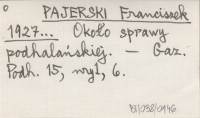 PAJERSKI Franciszek
1927... Około sprawy
podhalańskiej. — Gaz.
Podh. 15, nr 1, 6.
BJ/038/0146